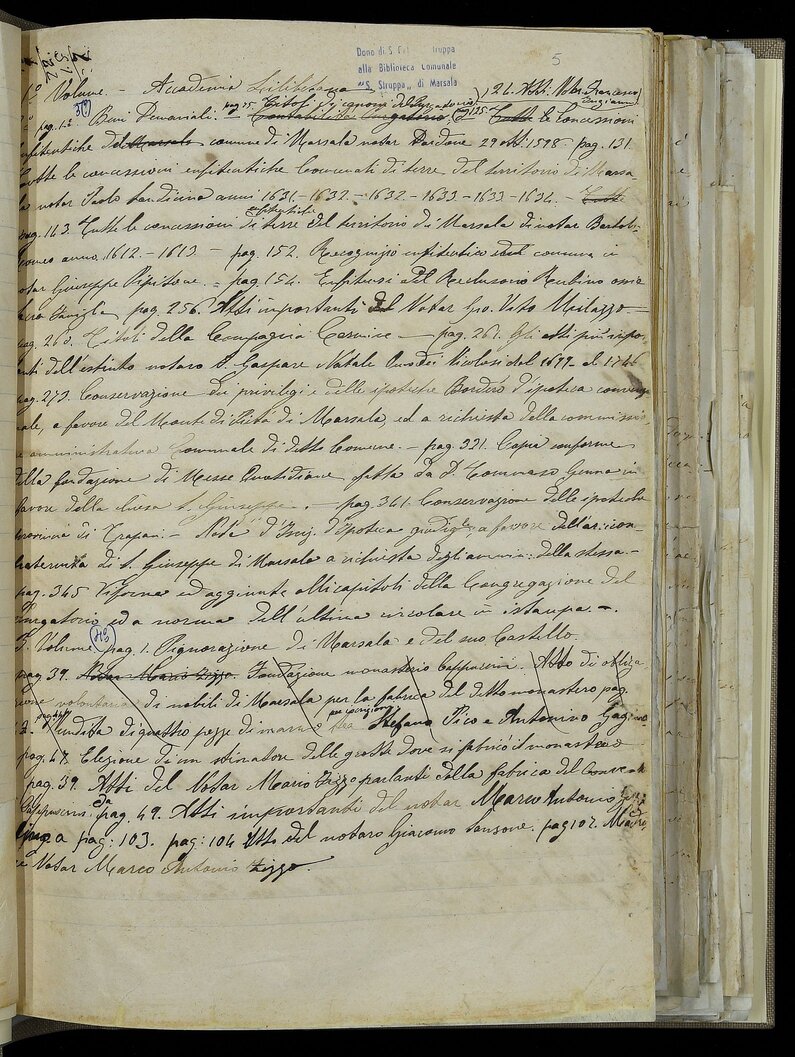 Dono di S. Struppa
alla Biblioteca Comunale
"S. Struppa" di Marsala
5
Volume. - Accademia Lilibetana
24. Atti Not. Francesco
pag. 15. Titoli
pag. 12 Beni Demaniali. Contabilità Purgatorio. pag 125. Tutte le Concessioni
enfiteutiche del Marsala comune di Marsala notar Pardone 29 1598 - pag. 131.
tutte le concessioni enfiteutiche Comunali di terre del territorio di Marsa-
la notar Paolo anni 1631-1632-1632-1633-1633-1634. - Tutte
enfiteutiche
pag. 143. Tutte le concessioni di terre del territorio di Marsala di notar Bartolo-
meo anno 1612-1613 - pag. 152. enfiteutico del comune in
notar Giuseppe Pipitone. = pag. 154. Enfiteusi del Reclusorio Rubino
Sacra Famiglia pag. 256. Atti importanti del Notar Gio. Vito Milazzo -
pag. 263. Titoli della Compagnia - pag. 267. Gli atti più impo-
nti dell'estinto notaro D. Gaspare Natale Nicolosi dal 1677 al 1746
pag. 273. Conservazione dei privilegi e delle ipoteche Borderò d'ipoteca convenzio-
nale, a favore del Monte di Pietà di Marsala, ed a richiesta della commissio-
ne amministrativa Comunale di detto Comune. - pag. 331. Copia conforme
della fondazione di Messe Quotidiane fatta da D. Tommaso Genna in
favore della chiesa S. Giuseppe. - pag. 341. Conservazione delle ipoteche
provincia di Trapani. - Nota d'Inq. d'ipoteca a favore dell'arcicon-
fraternita di S. Giuseppe di Marsala a richiesta degli della stessa -
pag. 345 Riforma ed aggiunte alli capitoli della Congregazione del
Purgatorio ed a norma dell'ultima circolare in istampa. -
Volume pag. 1. Pignorazione di Marsala e del suo Castello.
pag. 39. Notar Marco Zizzo. Fondazione monastero Cappuccini. Atto di obbliga-
zione volontaria di nobili di Marsala per la fabrica del detto monastero pag.
Vendita di quattro pezze di marmo Stefano Pico e Antonino Gagino
pag. 47. Elezione di un estimatore delle grotte dove si fabricò il monastero
pag. 39. Atti del Notar Marco Zizzo parlanti della fabrica del Convento
Cappuccini. pag. 49. Atti importanti del notar Marco Antonio Zizzo
a pag: 103. pag: 104 Atto del notaro Giacomo Sansone. pag 107.
Notar Marco Antonio Zizzo.